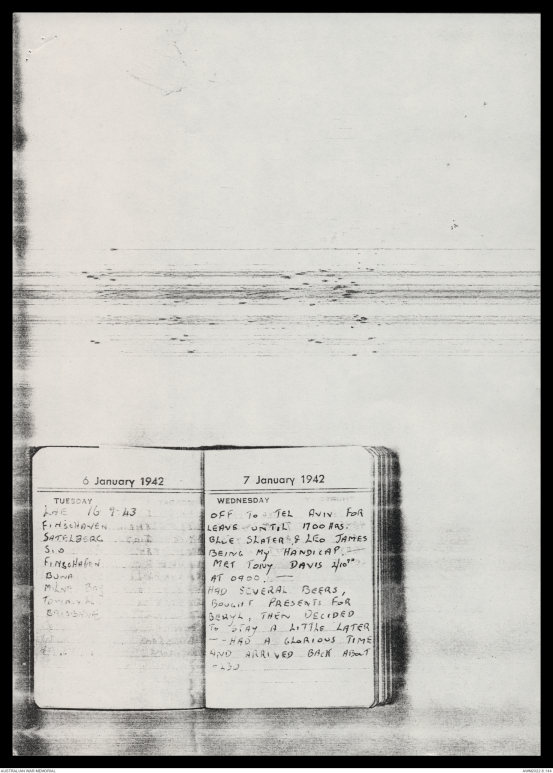 6 January 1942
TUESDAY
LAE 16.9.43
FINSCHAVEN
SATELBERG
SIO
FINSCHAFEN
BUNA
MILNE BAY
TOWNSVILLE
BRISBANE
7 January 1942
WEDNESDAY
OFF TO TEL AVIV FOR
LEAVE UNTIL 1700 HRS.
BLUE SLATER & LEO JAMES
BEING MY HANDICAP.
MET TONY DAVIS 2/10
AT 0900.
HAD SEVERAL BEERS,
BOUGHT PRESENTS FOR
BERYL, THEN DECIDED
TO STAY A LITTLE LATER
-- HAD A GLORIOUS TIME
AND ARRIVED BACK ABOUT
AUSTRALIAN WAR MEMORIAL